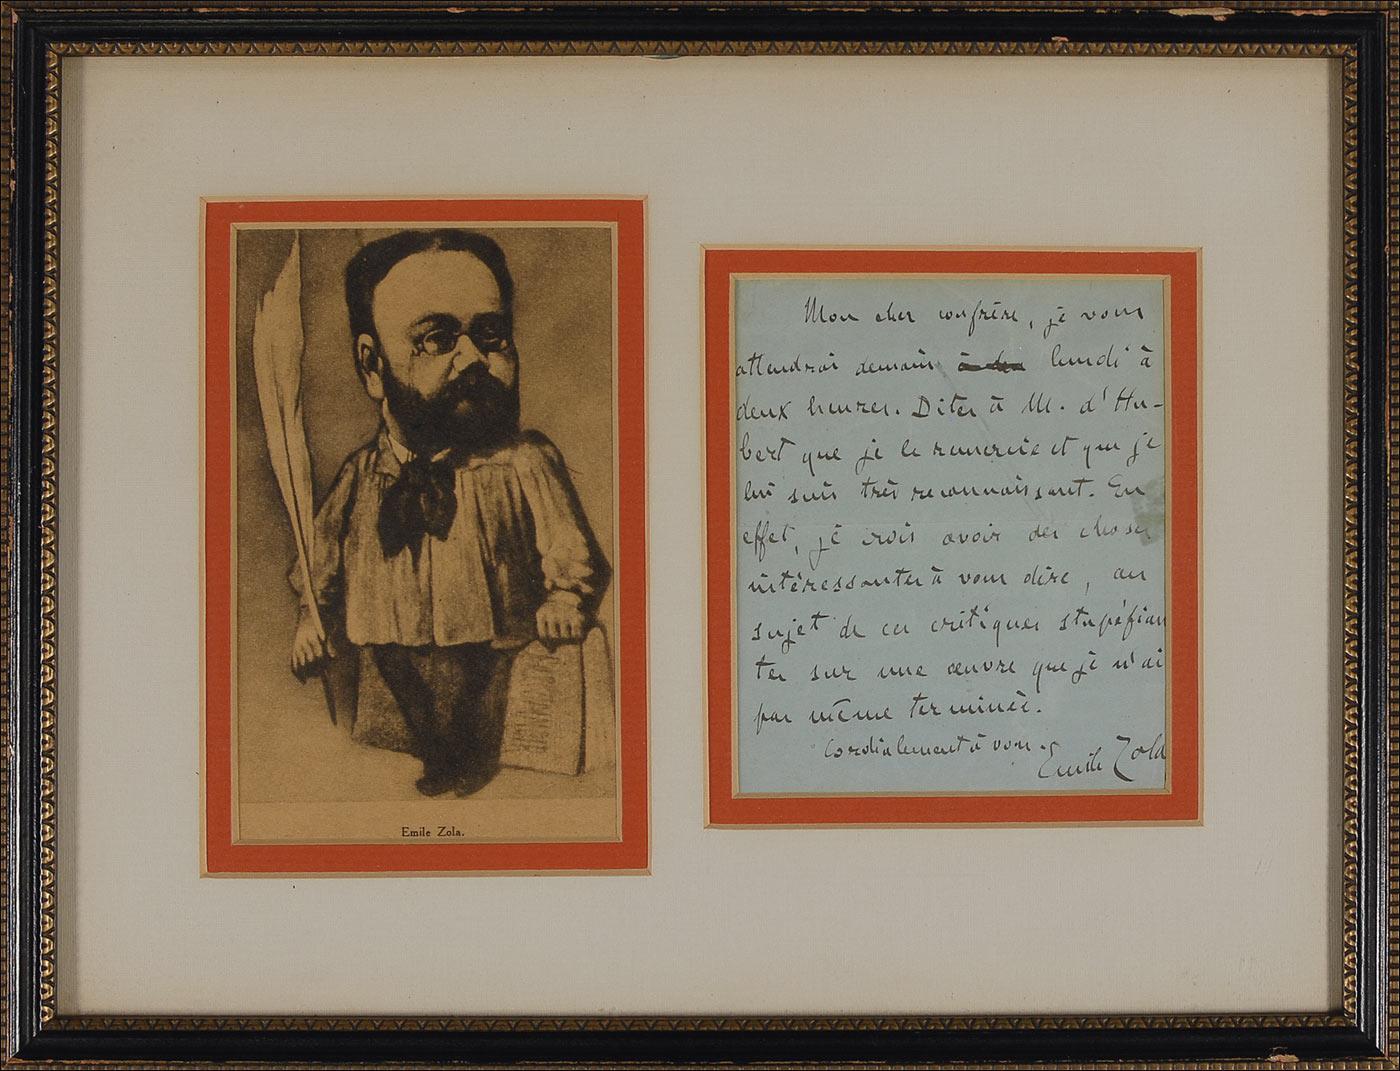 Emile Zola.
Mon cher confrère, je vous
attendrai demain lundi à
deux heures. Dites à M. d'Hu-
bert que je le remercie et que je
lui suis très reconnaissant. En
effet, je crois avoir des choses
intéressantes à vous dire, au
sujet de ces critiques stupéfian
tes sur une œuvre que je n'ai
pas même terminée.
Cordialement à vous.
Emile Zola